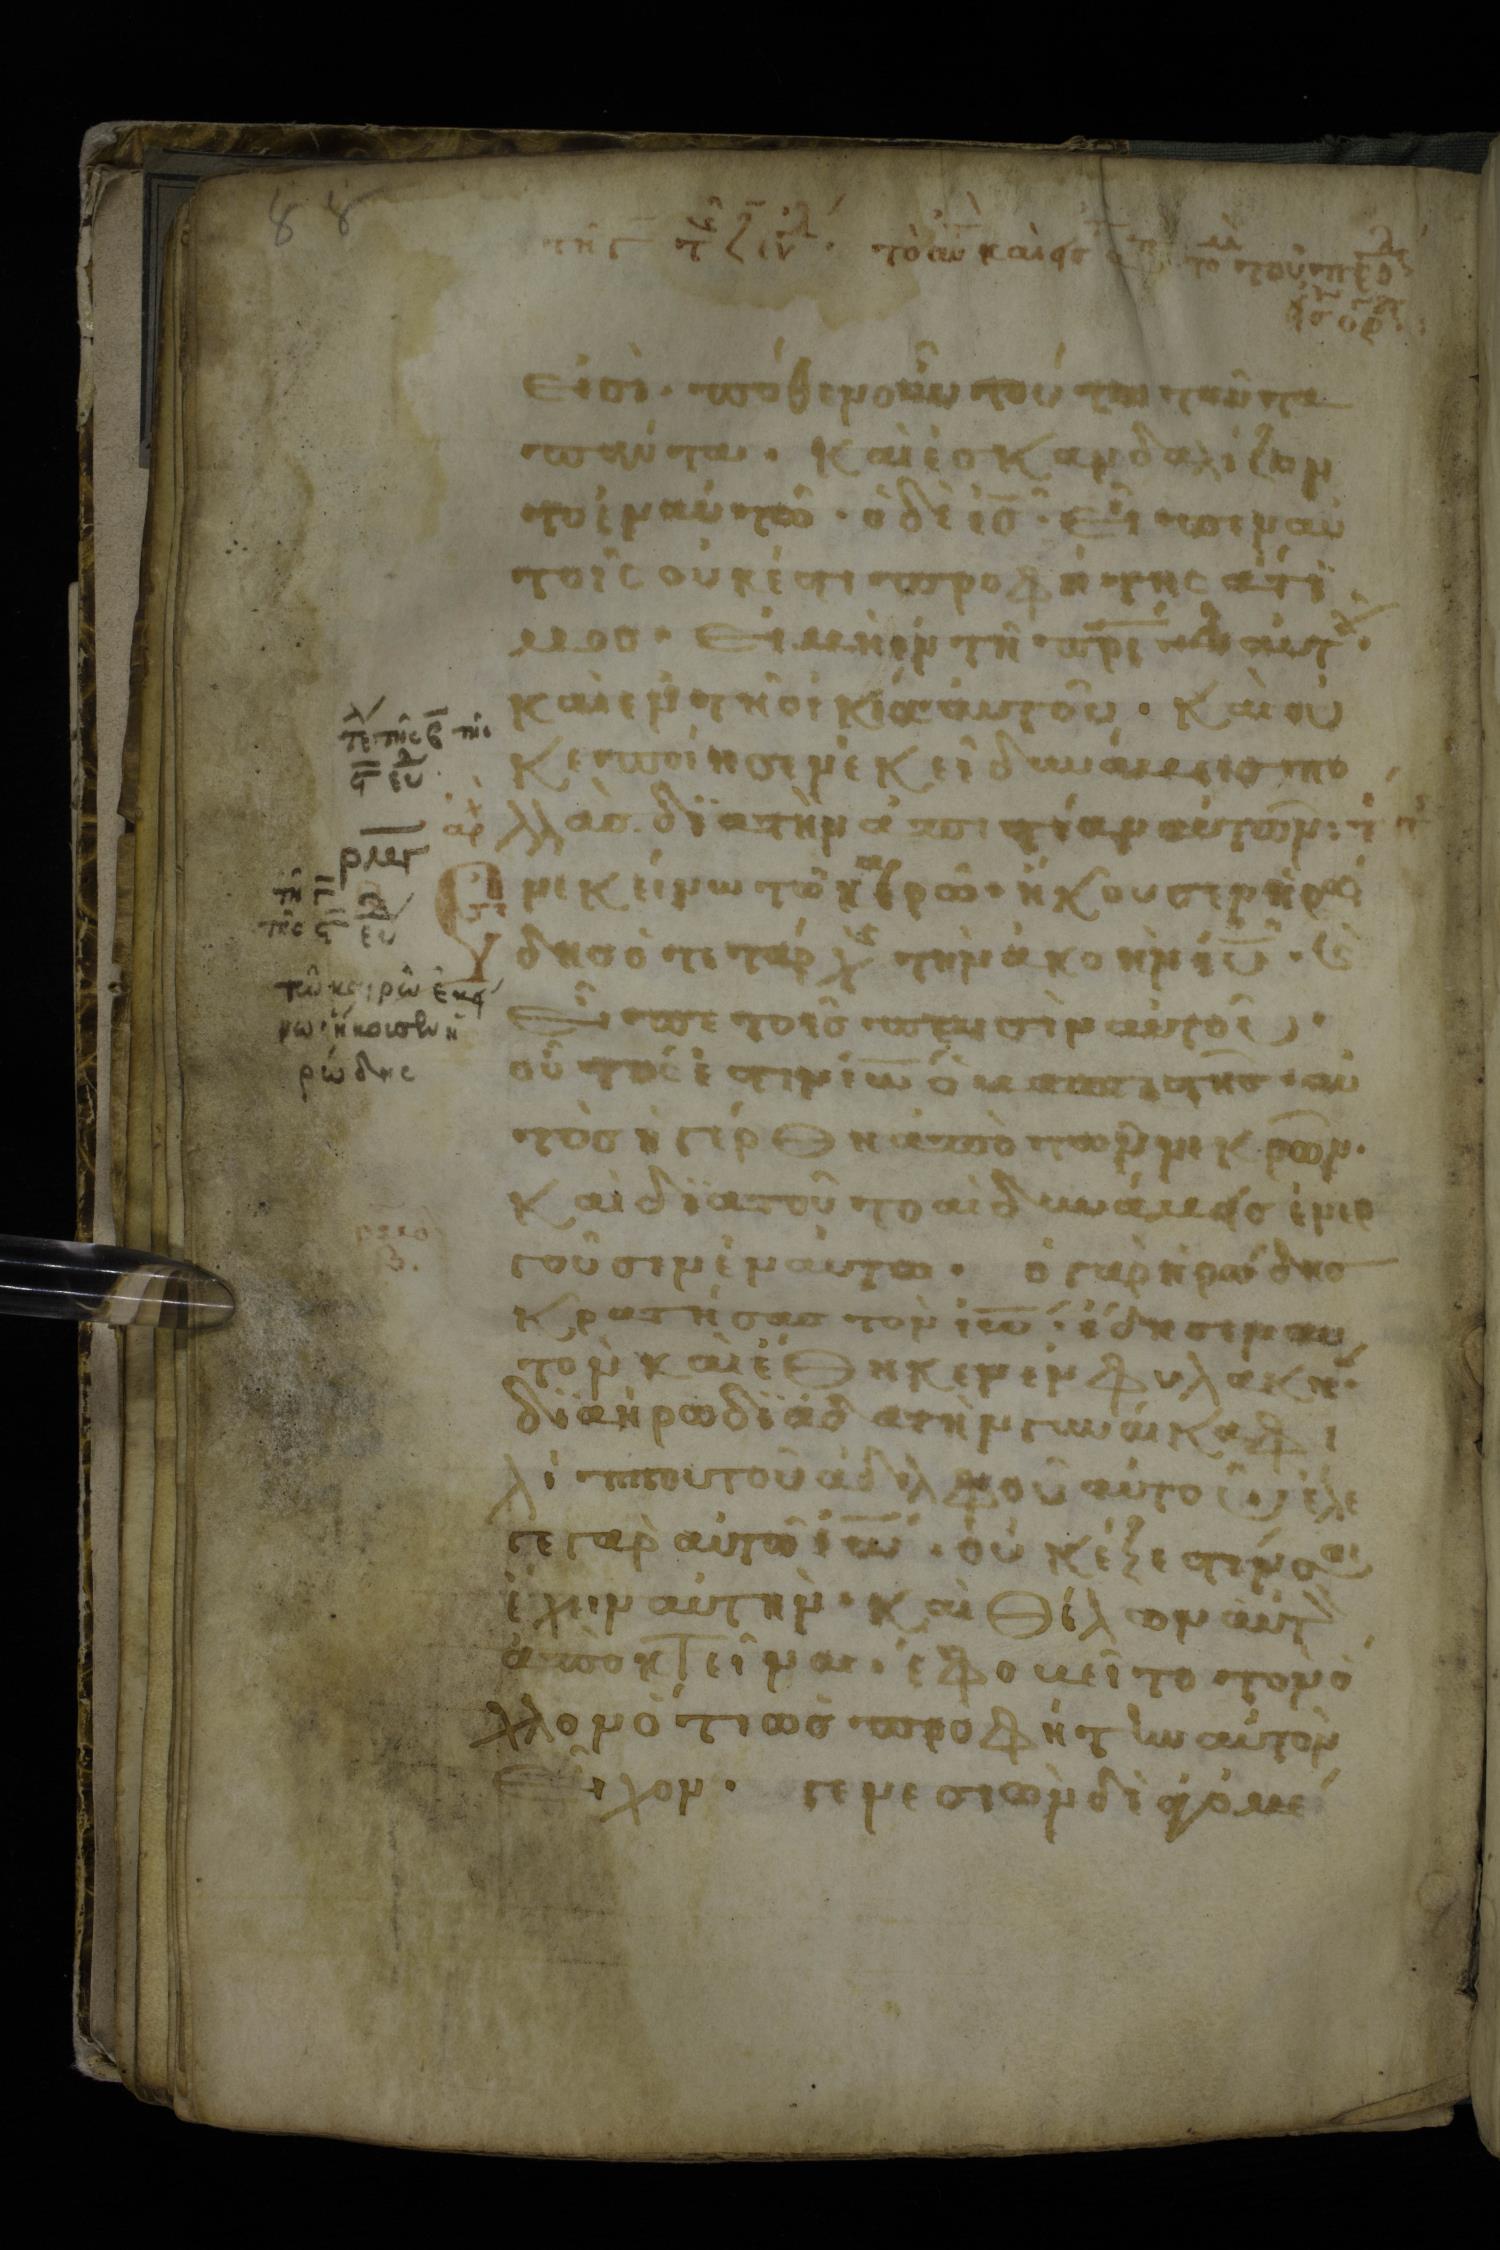 88
εἰσὶ· πόθεν οὖν τούτω ταῦτα
πάντα· καὶ ἐσκανδαλίζον
το ἐν αὐτῶ· ὁ δὲ ἰς· εἶπεν αὐ
τοῖς οὐκ ἔστι προφήτης ἄτι
μος· εἰ μὴ ἐν τῆ πρι αὐτ·
καὶ ἐν τῆ οἰκία αὐτοῦ· καὶ οὐ
κ ἐποίησεν ἐκεῖ δυνάμεις πο
λλὰς διὰ τὴν ἀπιστίαν αὐτῶν:
Εν ἐκείνω τῶ καιρῶ· ἤκουσεν ἡρώ
δης ὁ τετράρχης τὴν ἀκοὴν ἰυ· καὶ
εἶπε τοῖς παισὶν αὐτοῦ·
οὗτός ἐστιν ἰω ὁ βαπτιστης· αὐ
τὸς ἠγέρθη ἀπὸ τῶν νεκρῶν·
καὶ διὰ τοῦτο αἱ δυνάμεις ἐνερ
γοῦσιν ἐν αὐτῶ· ὁ γὰρ ἡρώδης
κρατήσας τὸν ἰω· ἔδησεν αὐ
τὸν καὶ ἔθηκεν ἐν φυλακῆ·
διὰ ἡρωδιάδα τὴν γυναῖκα φι
λίππου τοῦ ἀδελφοῦ αὐτοῦ ἔλε
γε γὰρ αὐτῶ ἰω· οὐκ ἔξεστίν σοι
ἔχειν αὐτὴν· καὶ θέλων αὐτὸν
ἀποκτεῖναι· ἐφοβεῖτο τὸν ὄ
χλον ὅτι ὡς προφήτην αὐτὸν
εἶχον· γενεσίων δὲ ἀγομέ
ἀρχ
ρμγ
τῶ καιρῶ ἐκεί
νω ἤκουσεν ἡ
ρώδης